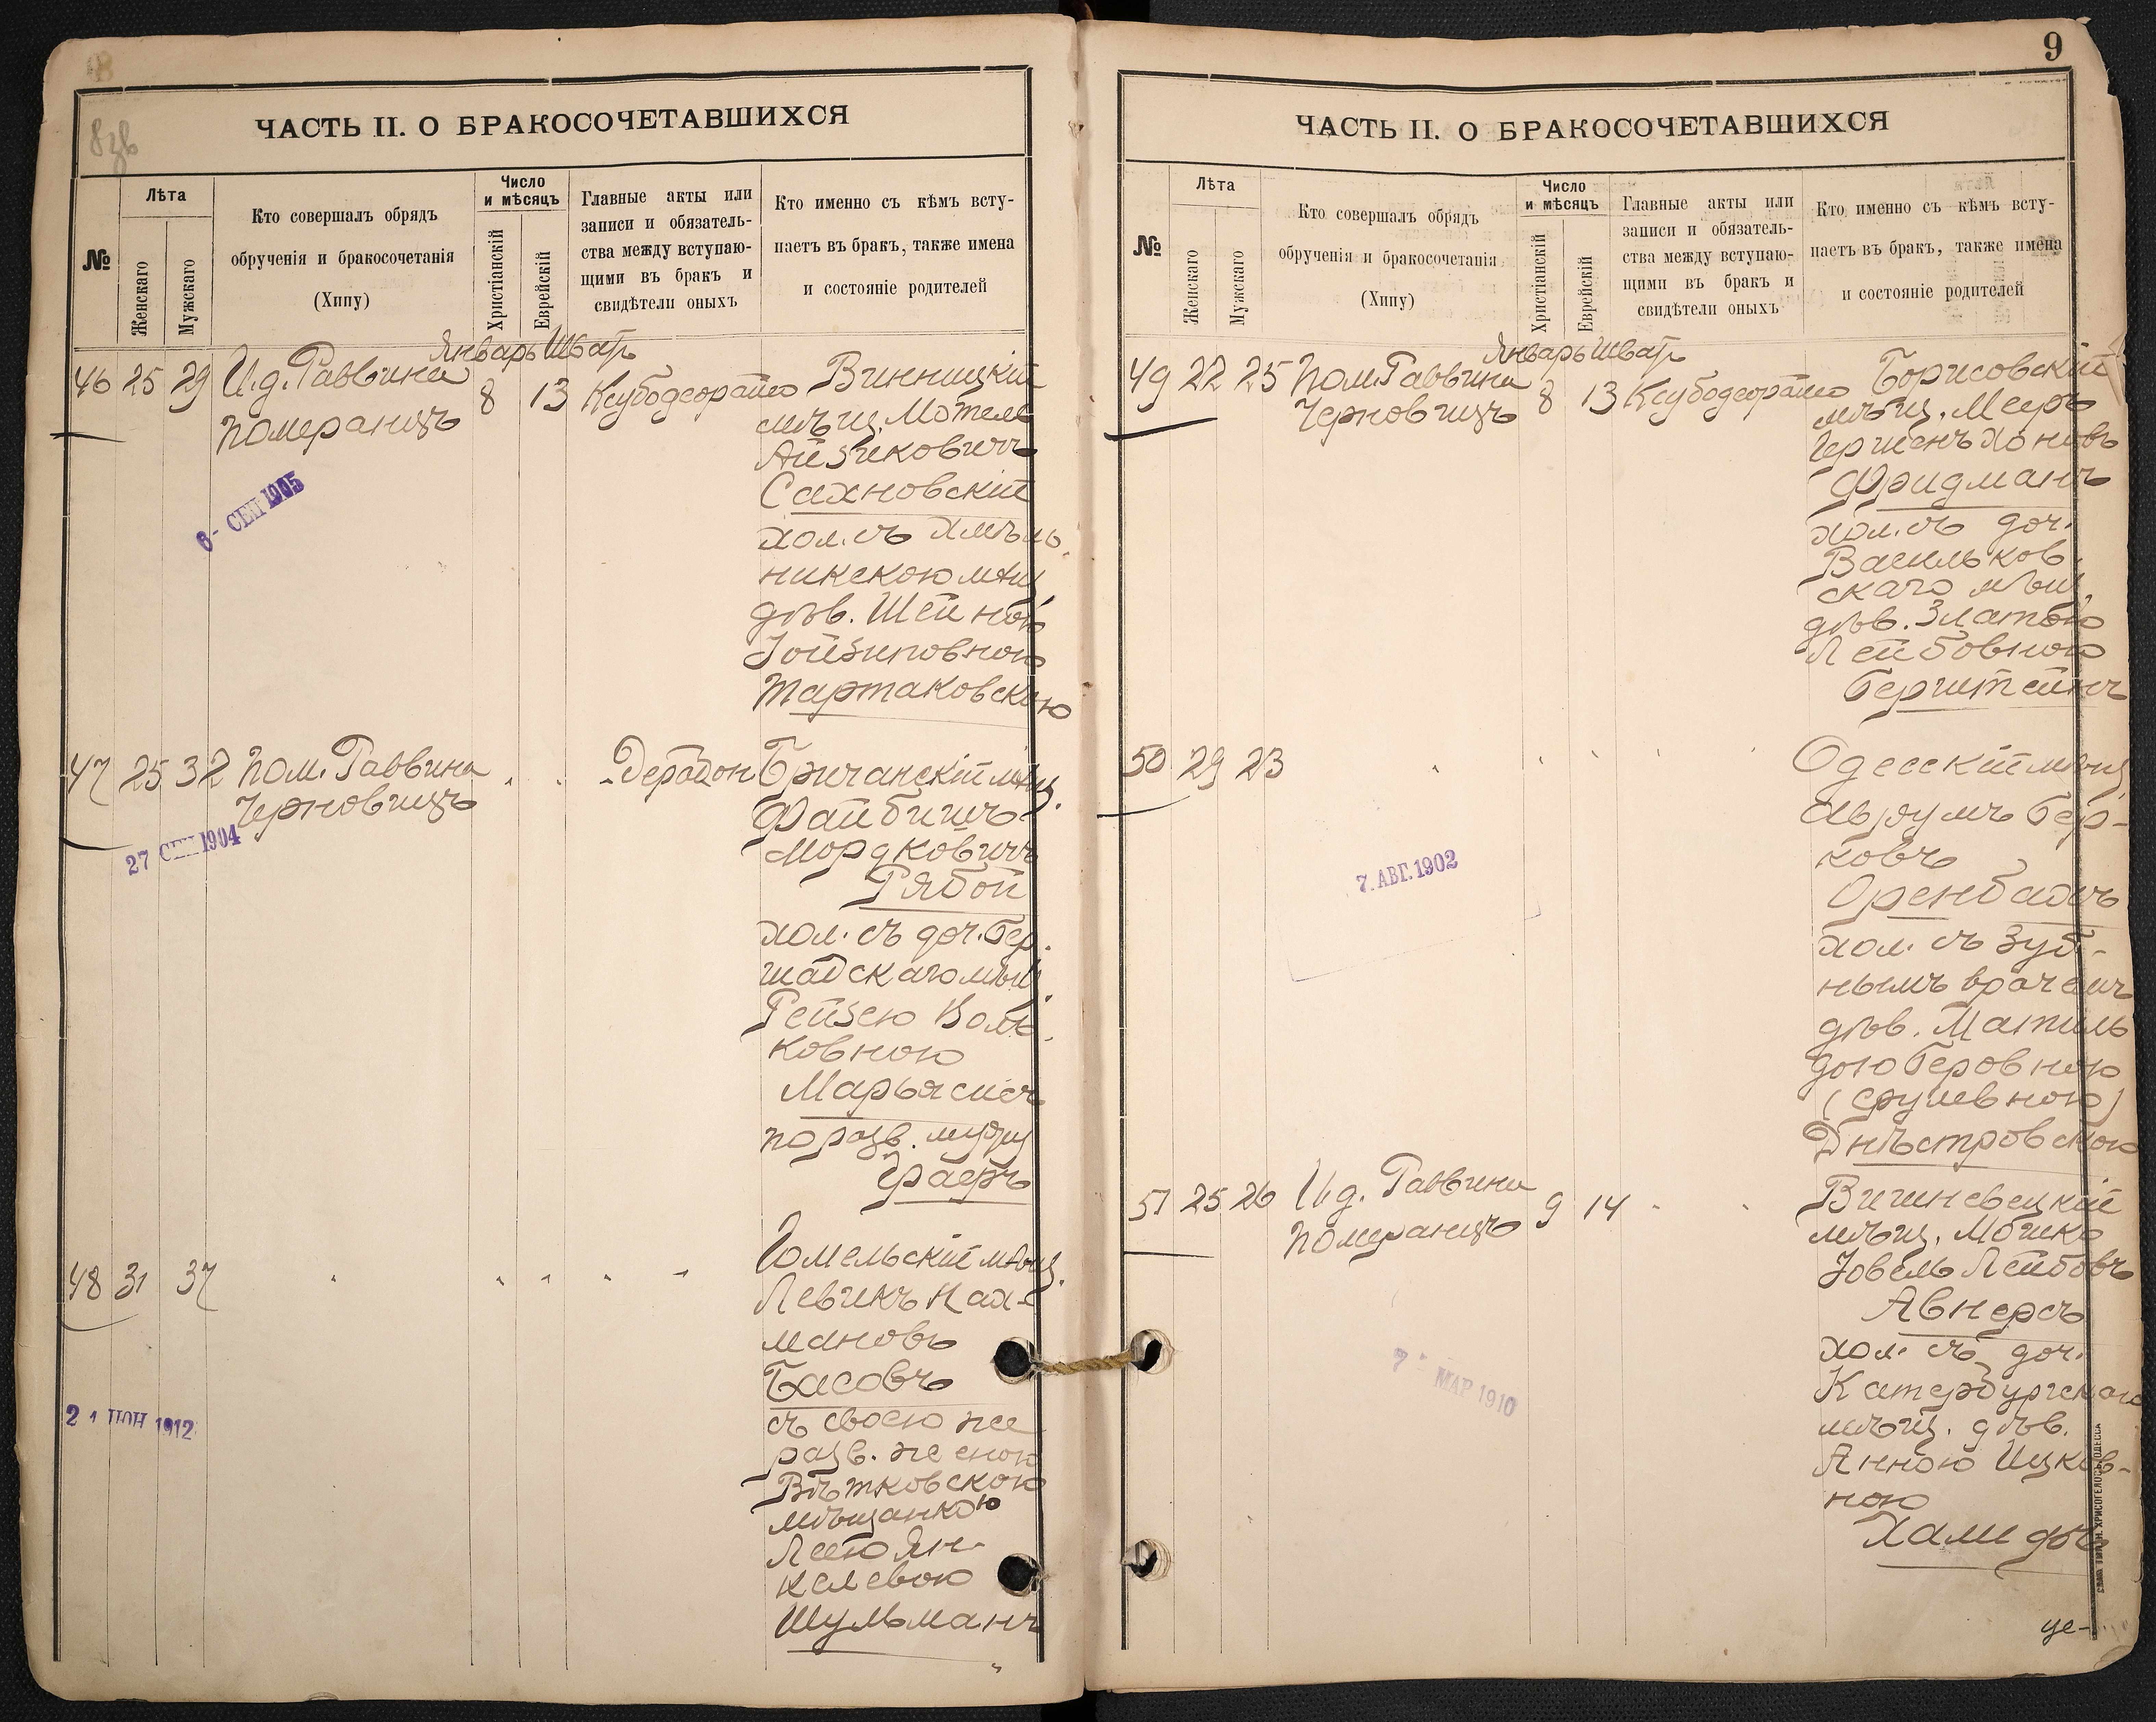 8
8зв
ЧАСТЬ II. О БРАКОСОЧЕТАВШИХСЯ
№
Лѣта
Женскаго
Мужскаго
Кто совершалъ обрядъ
обрученія и бракосочетанія
(Хипу)
Число
и мѣсяцъ
Христіанскій
Еврейскій
Главные акты или
записи и обязатель-
ства между вступаю-
щими въ бракъ и
свидѣтели оныхъ
Кто именно съ кѣмъ всту-
паетъ въ бракъ, также имена
и состояніе родителей
Январь Шватъ
46 25 29 И.д. Раввина 8 13 Винницкій
Померанцъ
мѣщ. Мотель
Айзиковичъ
Сахновскій
хол. съ Хмѣль-
никскою мѣщ.
дѣв. Шейною
Іойзиповною
Тартаковскою
6- СЕН 1905
47 25 32 Пом. Раввина " " Бричанскій мѣщ.
Черновицъ
Файбишъ
Мордковичъ
Рябой
хол. съ доч. Бер-
шадскаго мѣщ.
Рейзею Воль-
ковною
по разв. мужу
27 СЕН 1904
48 31 37 " " " " " Гомельскій мѣщ.
Левикъ Нах-
мановъ
Басовъ
съ своею же
разв. женою
Вѣтковскою
мѣщанкою
Леею Ян-
келевою
Шульманъ
21 ІЮН 1912
9
ЧАСТЬ II. О БРАКОСОЧЕТАВШИХСЯ
№
Лѣта
Женскаго
Мужскаго
Кто совершалъ обрядъ
обрученія и бракосочетанія
(Хипу)
Число
и мѣсяцъ
Христіанскій
Еврейскій
Главные акты или
записи и обязатель-
ства между вступаю-
щими въ бракъ и
свидѣтели оныхъ
Кто именно съ кѣмъ всту-
паетъ въ бракъ, также имена
и состояніе родителей
Январь Шватъ
49 22 25 Пом. Раввина 8 13 Борисовскій
Черновицъ
мѣщ. Мееръ
Гершенъ Хоновъ
Фридманъ
хол. съ доч.
Васильков-
скаго мѣщ.
дѣв. Златою
Лейбовною
Бернштейнъ
50 29 23 " " " " " Одесскій мѣщ.
Аврумъ Бер-
ковъ
Оренбахъ
хол. съ зуб-
нымъ врачемъ
дѣв. Матиль
дою Беровною
(Срулевною)
Днѣстровскою
7. АВГ. 1902
51 25 26 И.д. Раввина 9 14 " " Вишневецкій
Померанцъ
мѣщ. Мошко
Іовель Лейбовъ
Авнеръ
хол. съ доч.
Катербургскаго
мѣщ. дѣв.
Анною Ицков-
ною
7- МАР 1910